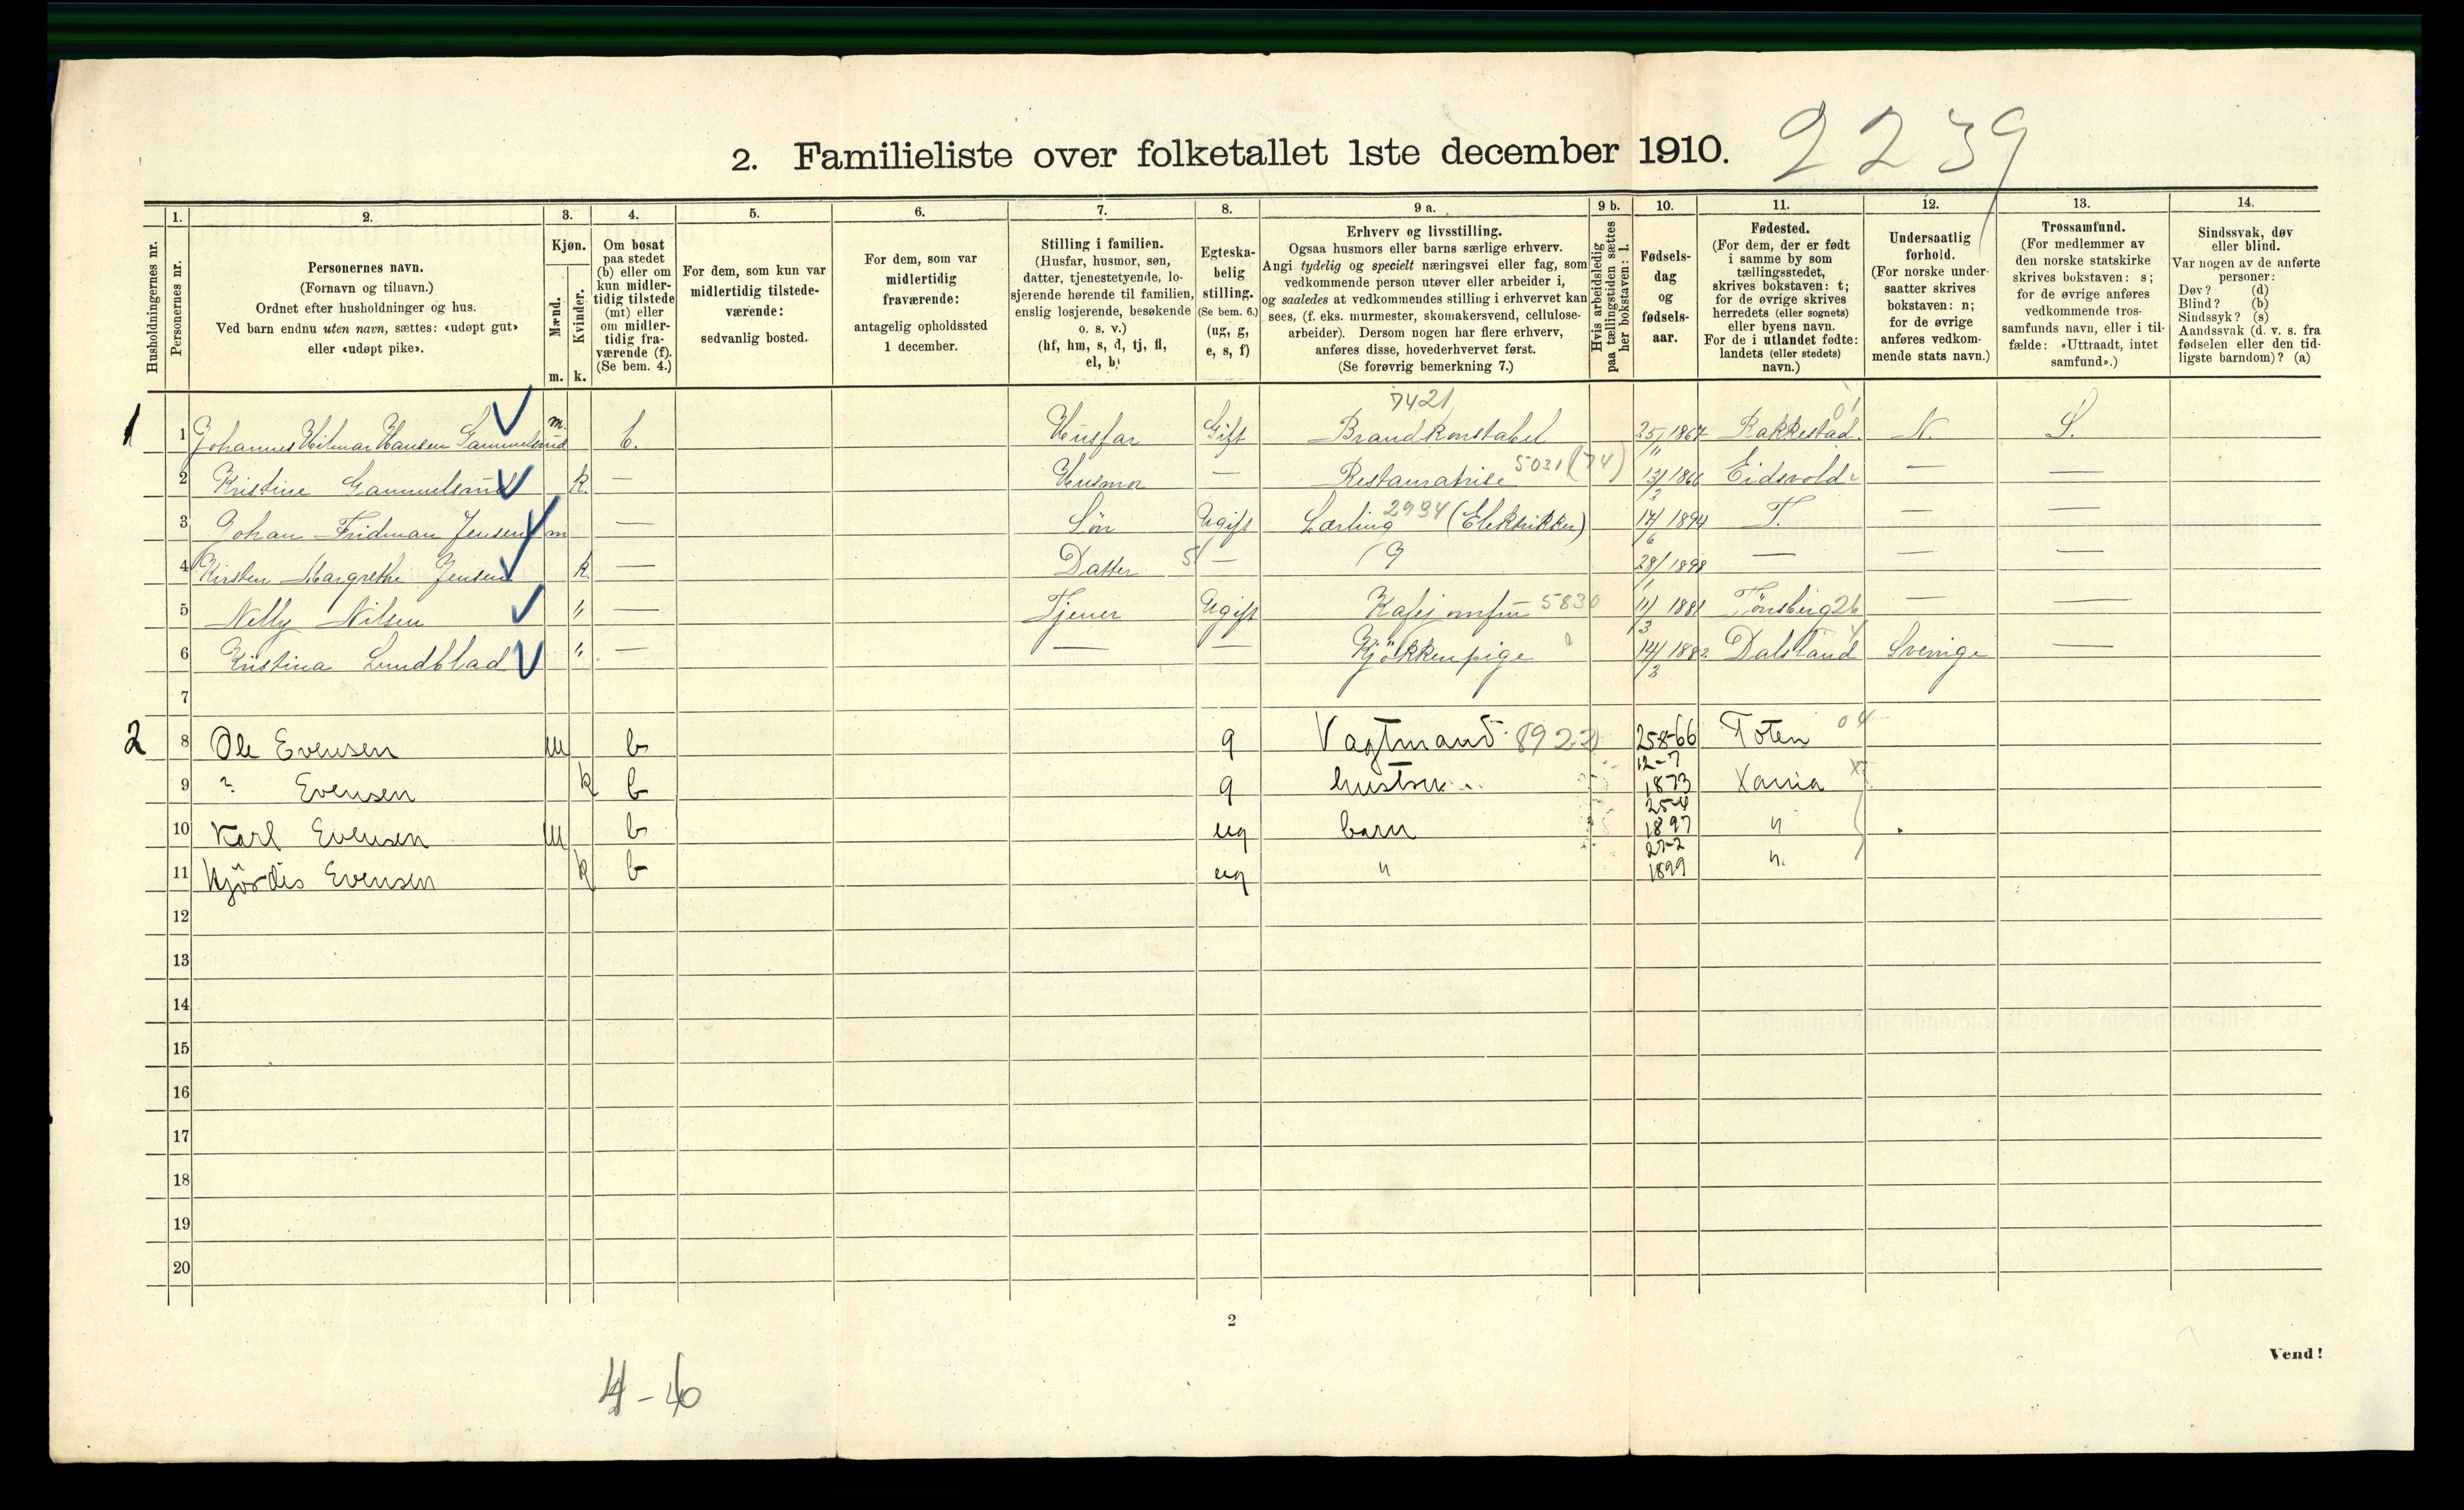 2. Familieliste over folketallet 1ste december 1910. 2239
Husholdningernes nr.
1. Personernes nr.
2. Personernes navn. (Fornavn og tilnavn.) Ordnet efter husholdninger og hus. Ved barn endnu uten navn, sættes: «udøpt gut» eller «udøpt pike».
3. Kjøn. Mænd. m. Kvinder. k.
4. Om bosat paa stedet (b) eller om kun midlertidig tilstede (mt) eller om midlertidig fraværende (f). (Se bem. 4.)
5. For dem, som kun var midlertidig tilstedeværende: sedvanlig bosted.
6. For dem, som var midlertidig fraværende: antagelig opholdssted 1 december.
7. Stilling i familien. (Husfar, husmor, søn, datter, tjenestetyende, losjerende hørende til familien, enslig losjerende, besøkende o. s. v.) (hf, hm, s, d, tj, fl, el, b)
8. Egteskabelig stilling. (Se bem. 6.) (ug, g, e, s, f)
9 a. Erhverv og livsstilling. Ogsaa husmors eller barns særlige erhverv. Angi tydelig og specielt næringsvei eller fag, som vedkommende person utøver eller arbeider i, og saaledes at vedkommendes stilling i erhvervet kan sees, (f. eks. murmester, skomakersvend, cellulosearbeider). Dersom nogen har flere erhverv, anføres disse, hovederhvervet først. (Se forøvrig bemerkning 7.)
9 b. Hvis arbeidsledig paa tællingstiden sættes her bokstaven: l.
10. Fødselsdag og fødselsaar.
11. Fødested. (For dem, der er født i samme by som tællingsstedet, skrives bokstaven: t; for de øvrige skrives herredets (eller sognets) eller byens navn. For de i utlandet fødte: landets (eller stedets) navn.)
12. Undersaatlig forhold. (For norske undersaatter skrives bokstaven: n; for de øvrige anføres vedkommende stats navn.)
13. Trossamfund. (For medlemmer av den norske statskirke skrives bokstaven: s; for de øvrige anføres vedkommende trossamfunds navn, eller i tilfælde: «Uttraadt, intet samfund».)
14. Sindssvak, døv eller blind. Var nogen av de anførte personer: Døv? (d) Blind? (b) Sindssyk? (s) Aandssvak (d. v. s. fra fødselen eller den tidligste barndom)? (a)
1 1 Johannes Hilmar Hansen Gammelsrud m. b. Husfar Gift 7421 Brandkonstabel 25/11 1867 Rakkestad. 01 N. S.
2 Kristine Gammelsrud k. — Husmor — Restauratrise 5031 (74) 13/3 1866 Eidsvold — —
3 Johan Fridman Jensen m — Søn Ugift Lærling 2934 (Elektriker) 17/6 1894 T. — —
4 Kirsten Margrethe Jensen k. — Datter 5 — 9 28/1 1898 — — —
5 Nelly Nilsen " — Tjener Ugift Kafejomfru 5830 11/3 1881 Tönsberg 26 — —
6 Kristina Lundblad " — — — Kjökkenpige 14/3 1882 Dalsland Sverige —
7
2 8 Ole Evensen m b g Vagtmand 8922 25-8-66 Toten 04
9 ? Evensen k b g hustru 12-7 1873 Xania
10 Karl Evensen m b ug barn 25-4 1897 "
11 Hjördis Evensen k b ug " 27-2 1899 "
12
13
14
15
16
17
18
19
20
2
Vend!
4-6